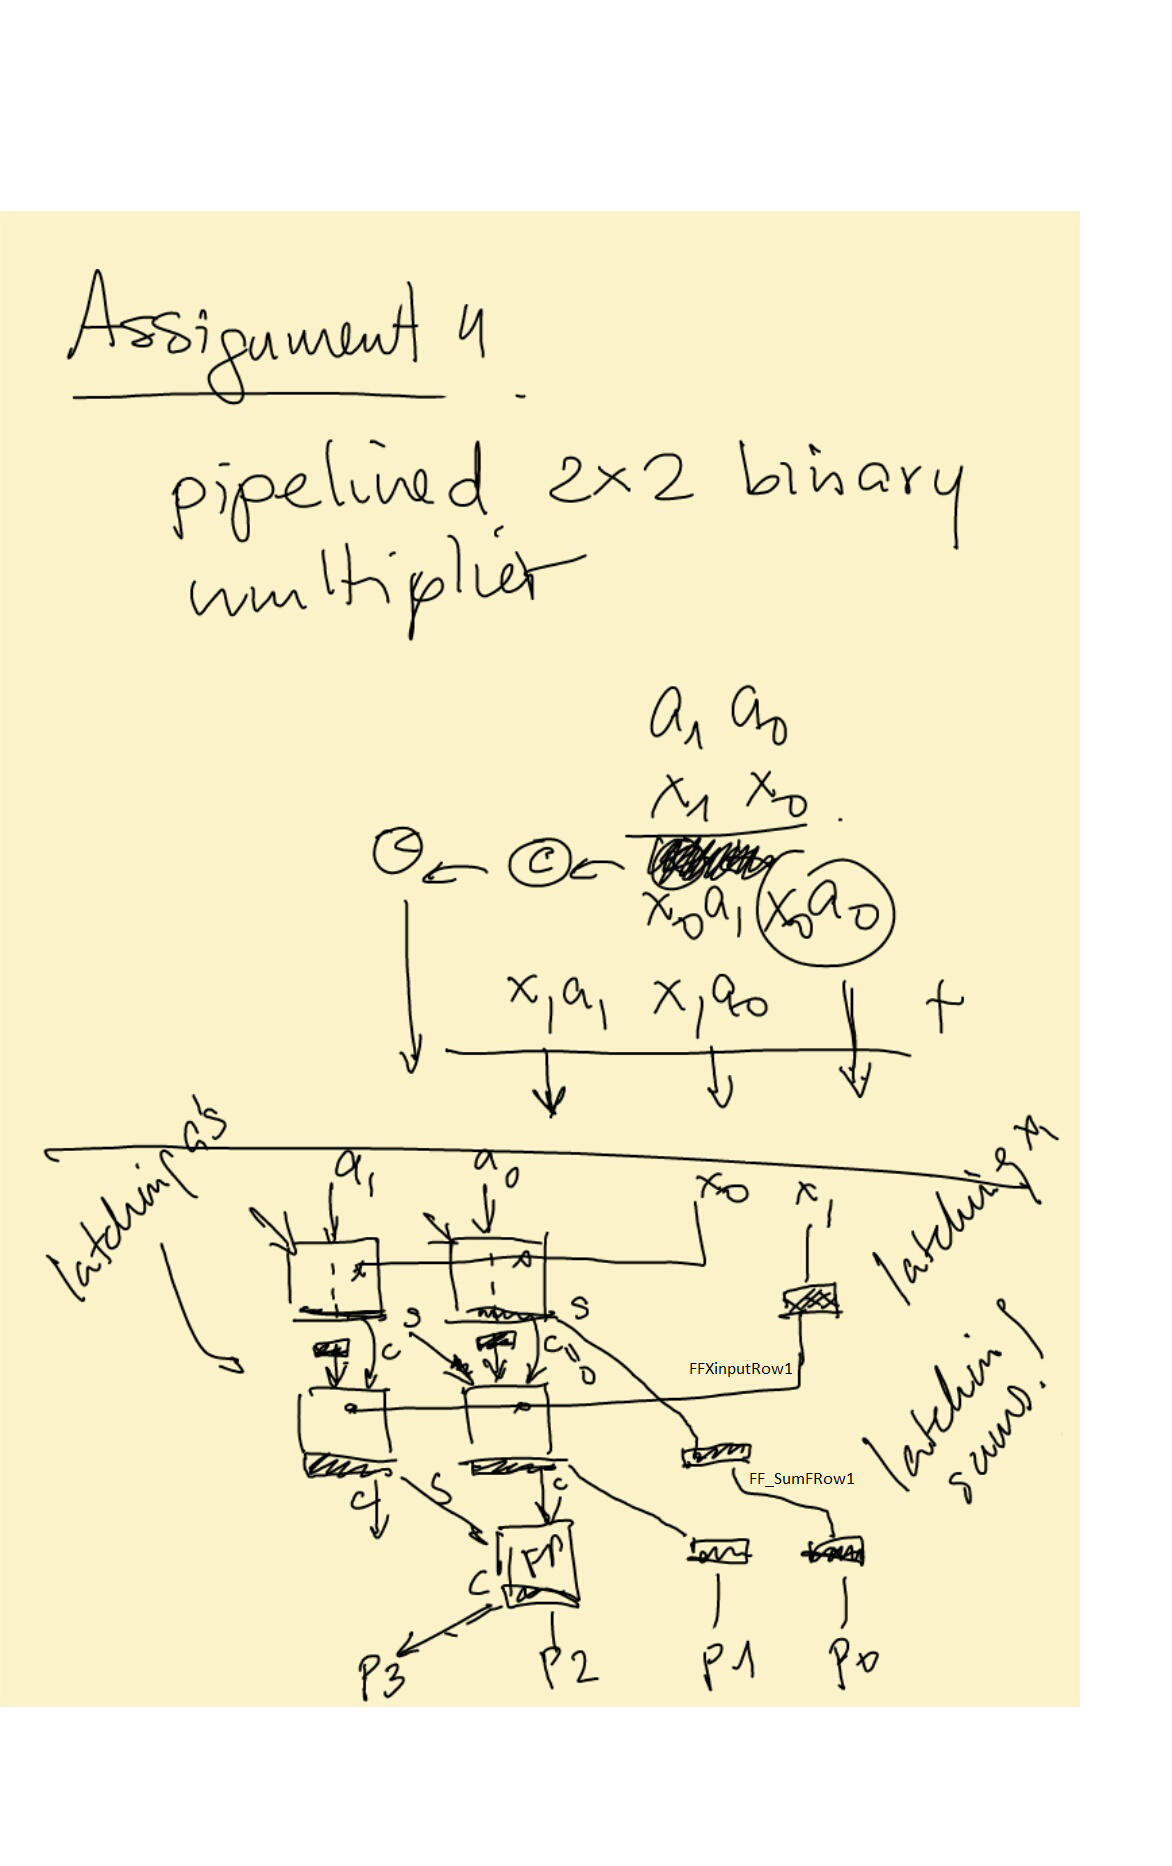 Assignment 4
pipelined 2x2 binary
multiplier
a1 a0
x1 x0
C C
x0a1 x0a0
x1a1 x1a0 +
latching a's
a1 a0 x0 x1
latching x1
S S
C C=0
FFXinputRow1
latching
sums.
FF_SumFRow1
C S C
C FA
P3 P2 P1 P0